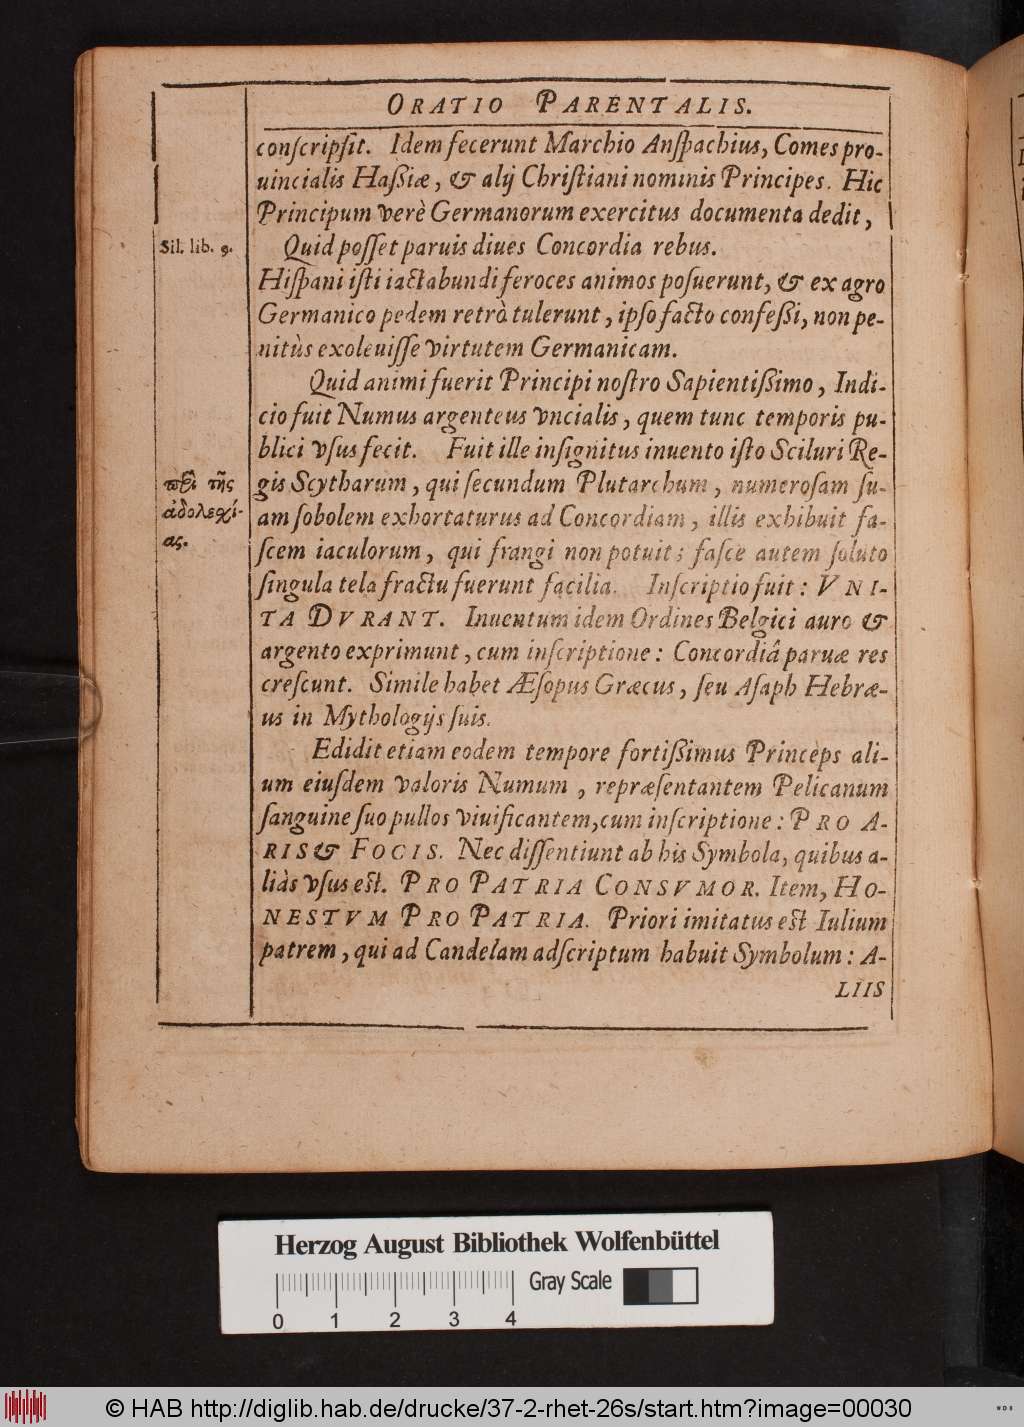 ORATIO PARENTALIS.
conſcripſit. Idem fecerunt Marchio Anſpachius, Comes pro-
uincialis Haßiæ, & alij Chriſtiani nominis Principes. Hic
Principum verè Germanorum exercitus documenta dedit,
Sil. lib. 9.
Quid poſſet paruis diues Concordia rebus.
Hiſpani iſti iactabundi feroces animos poſuerunt, & ex agro
Germanico pedem retrò tulerunt, ipſo facto confeßi, non pe-
nitùs exoleuiſſe virtutem Germanicam.
Quid animi fuerit Principi noſtro Sapientißimo, Indi-
cio fuit Numus argenteus vncialis, quem tunc temporis pu-
blici vſus fecit. Fuit ille inſignitus inuento iſto Sciluri Re-
περὶ τῆς
ἀδολεχί-
ας.
gis Scytharum, qui ſecundum Plutarchum, numeroſam ſu-
am ſobolem exhortaturus ad Concordiam, illis exhibuit fa-
ſcem iaculorum, qui frangi non potuit; faſce autem ſoluto
ſingula tela fractu fuerunt facilia. Inſcriptio fuit: VNI-
TA DVRANT. Inuentum idem Ordines Belgici auro &
argento exprimunt, cum inſcriptione: Concordiâ paruæ res
creſcunt. Simile habet Æſopus Græcus, ſeu Aſaph Hebræ-
us in Mythologijs ſuis.
Edidit etiam eodem tempore fortißimus Princeps ali-
um eiuſdem valoris Numum, repræſentantem Pelicanum
ſanguine ſuo pullos viuificantem, cum inſcriptione: PRO A-
RIS & FOCIS. Nec diſſentiunt ab his Symbola, quibus a-
liàs vſus eſt. PRO PATRIA CONSVMOR. Item, HO-
NESTVM PRO PATRIA. Priori imitatus eſt Iulium
patrem, qui ad Candelam adſcriptum habuit Symbolum: A-
LIIS
Herzog August Bibliothek Wolfenbüttel
Gray Scale
0 1 2 3 4
© HAB http://diglib.hab.de/drucke/37-2-rhet-26s/start.htm?image=00030